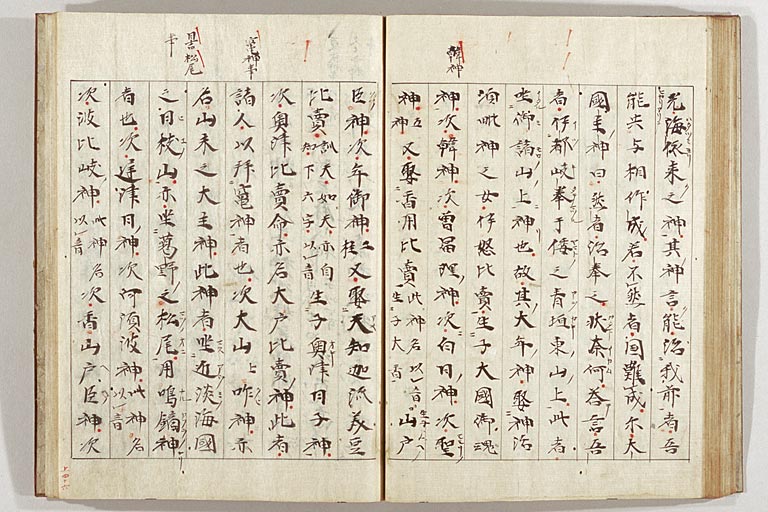 韓神
光海依来之神其神言能治我前者吾
能共与相作成若不然者国難成尓大
國主神曰然者治奉之状奈何荅言吾
者伊都岐奉于倭之青垣東山上此者
坐御諸山上神也故其大年神娶神活
須毗神之女伊怒比賣生子大國御魂
神次韓神次曽冨理神次白日神次聖
神五神又娶香用比賣此神名以音生子大香山戸
竈神事
松尾
事
臣神次年御神二柱又娶天知迦流美豆
比賣訓天如天亦自知下六字以音生子奥津日子神
次奥津比賣命亦名大戸比賣神此者
諸人以拜竈神者也次大山上咋神亦
名山末之大主神此神者坐近淡海國
之日枝山亦坐葛野之松尾用鳴鏑神
者也次庭津日神次阿須波神此神名以音
次波比岐神此神名以音次香山戸臣神次